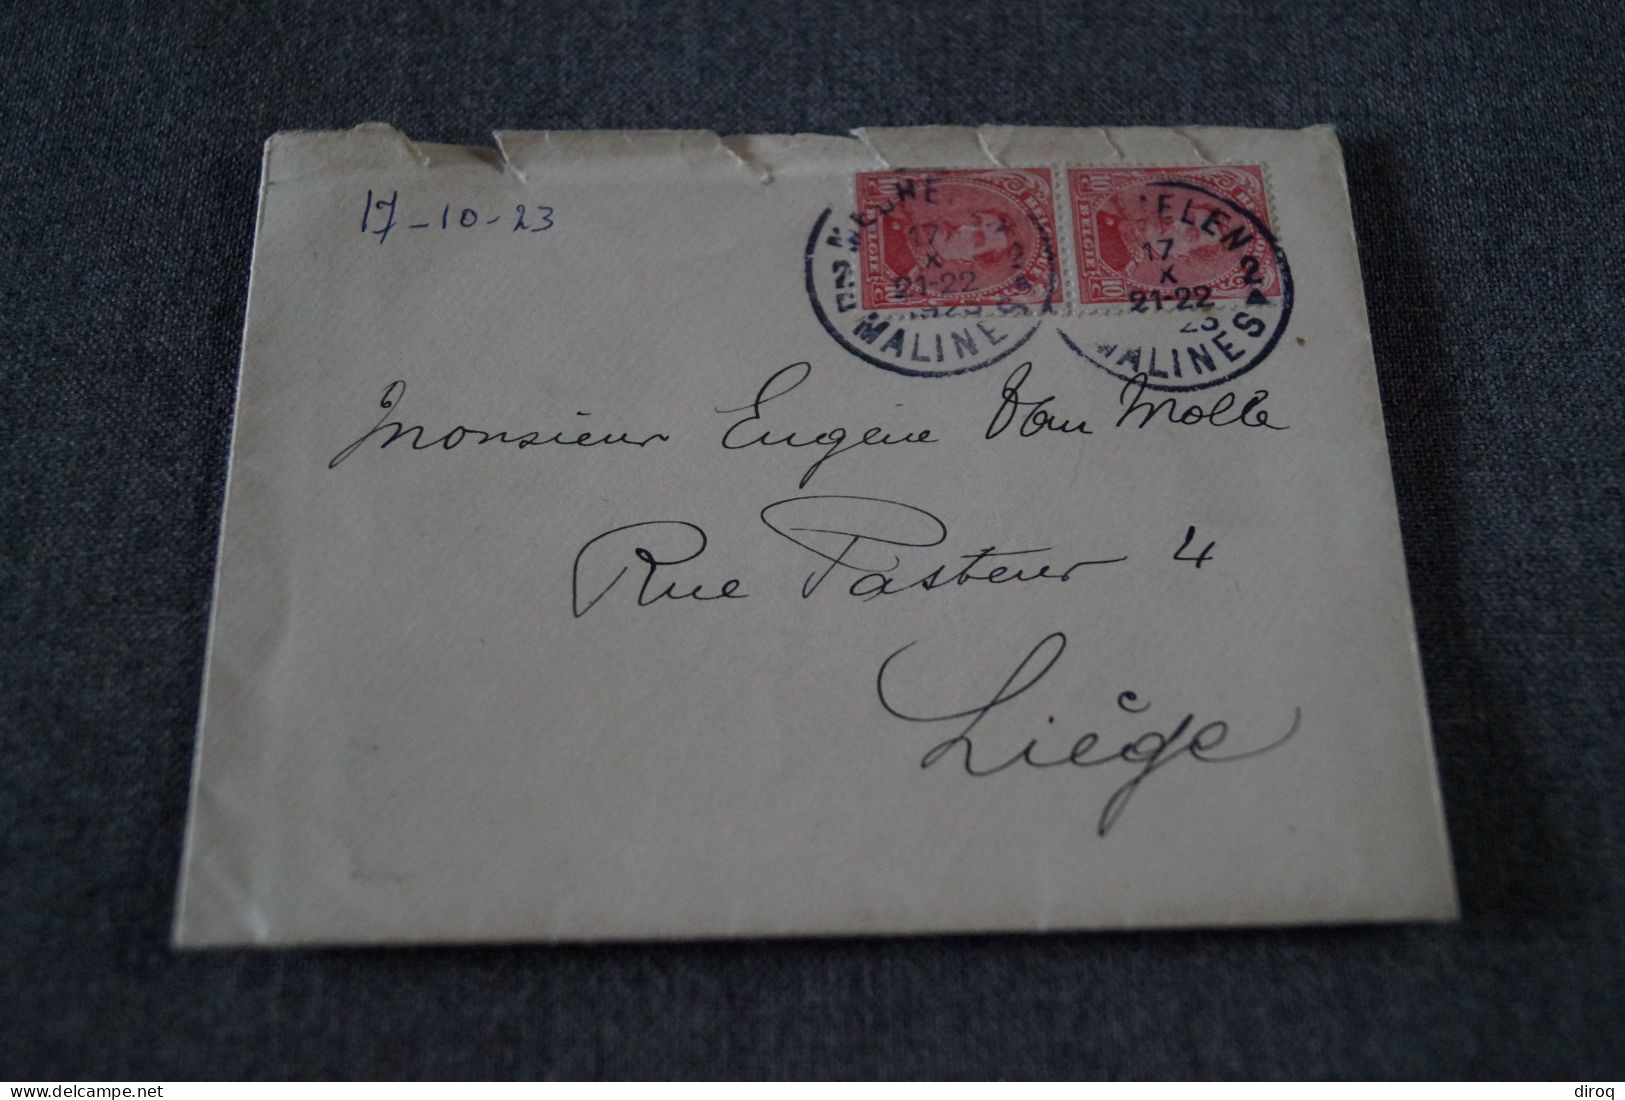 17-10-23
MECHE
17
X
21-22
1923
2
MALINES
HELEN
17
X
21-22
23
2
MALINES
10
C
BELGIE
BELGIQUE
10
C
10
C
BELGIE
10
C
Monsieur Eugène Van Molle
Rue Pasteur 4
Liège
diroq